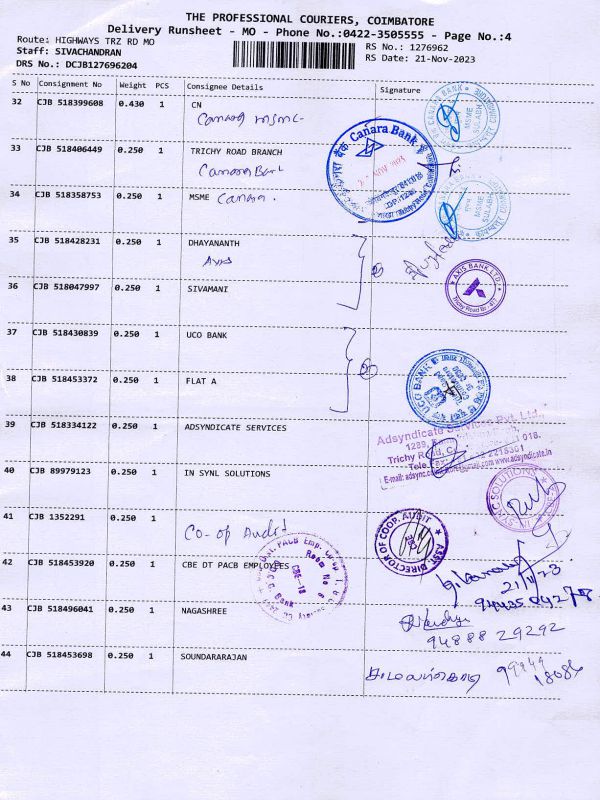 THE PROFESSIONAL COURIERS, COIMBATORE
Delivery Runsheet - MO - Phone No.:0422-3505555 - Page No.:4
Route: HIGHWAYS TRZ RD MO
RS No.: 1276962
Staff: SIVACHANDRAN
RS Date: 21-Nov-2023
DRS No.: DCJB127696204
S No Consignment No Weight PCS Consignee Details Signature
32 CJB 518399608 0.430 1 CN
Canara msme
33 CJB 518406449 0.250 1 TRICHY ROAD BRANCH
Canara Bank
34 CJB 518358753 0.250 1 MSME Canara.
35 CJB 518428231 0.250 1 DHAYANANTH
Axis
36 CJB 518047997 0.250 1 SIVAMANI
37 CJB 518430839 0.250 1 UCO BANK
38 CJB 518453372 0.250 1 FLAT A
39 CJB 518334122 0.250 1 ADSYNDICATE SERVICES
40 CJB 89979123 0.250 1 IN SYNL SOLUTIONS
41 CJB 1352291 0.250 1 Co-op Audit
42 CJB 518453920 0.250 1 CBE DT PACB EMPLOYEES
43 CJB 518496041 0.250 1 NAGASHREE
44 CJB 518453698 0.250 1 SOUNDARARAJAN
CANARA BANK
MSME SULABH
Canara Bank
CANARA BANK
MSME SULABH
AXIS BANK LTD.
Trichy Road
UCO BANK
Adsyndicate Services Pvt. Ltd.,
1289,
Trichy
018.
2215301
www.adsyndicate.in
SOLUTIONS
ASST. DIRECTOR OF COOP. AUDIT
CBE
PACB Emp.
Room No 6
CBE-18
21/11/23
94888 29292